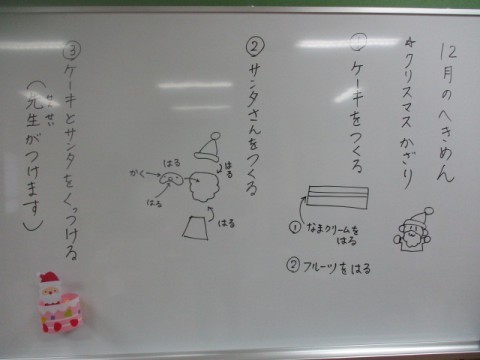 12月のへきめん
☆クリスマスかざり
① ケーキをつくる
① なまクリームを
はる
② フルーツをはる
② サンタさんをつくる
はる
はる
かく
はる
はる
③ ケーキとサンタをくっつける
(先生がつけます)
せんせい